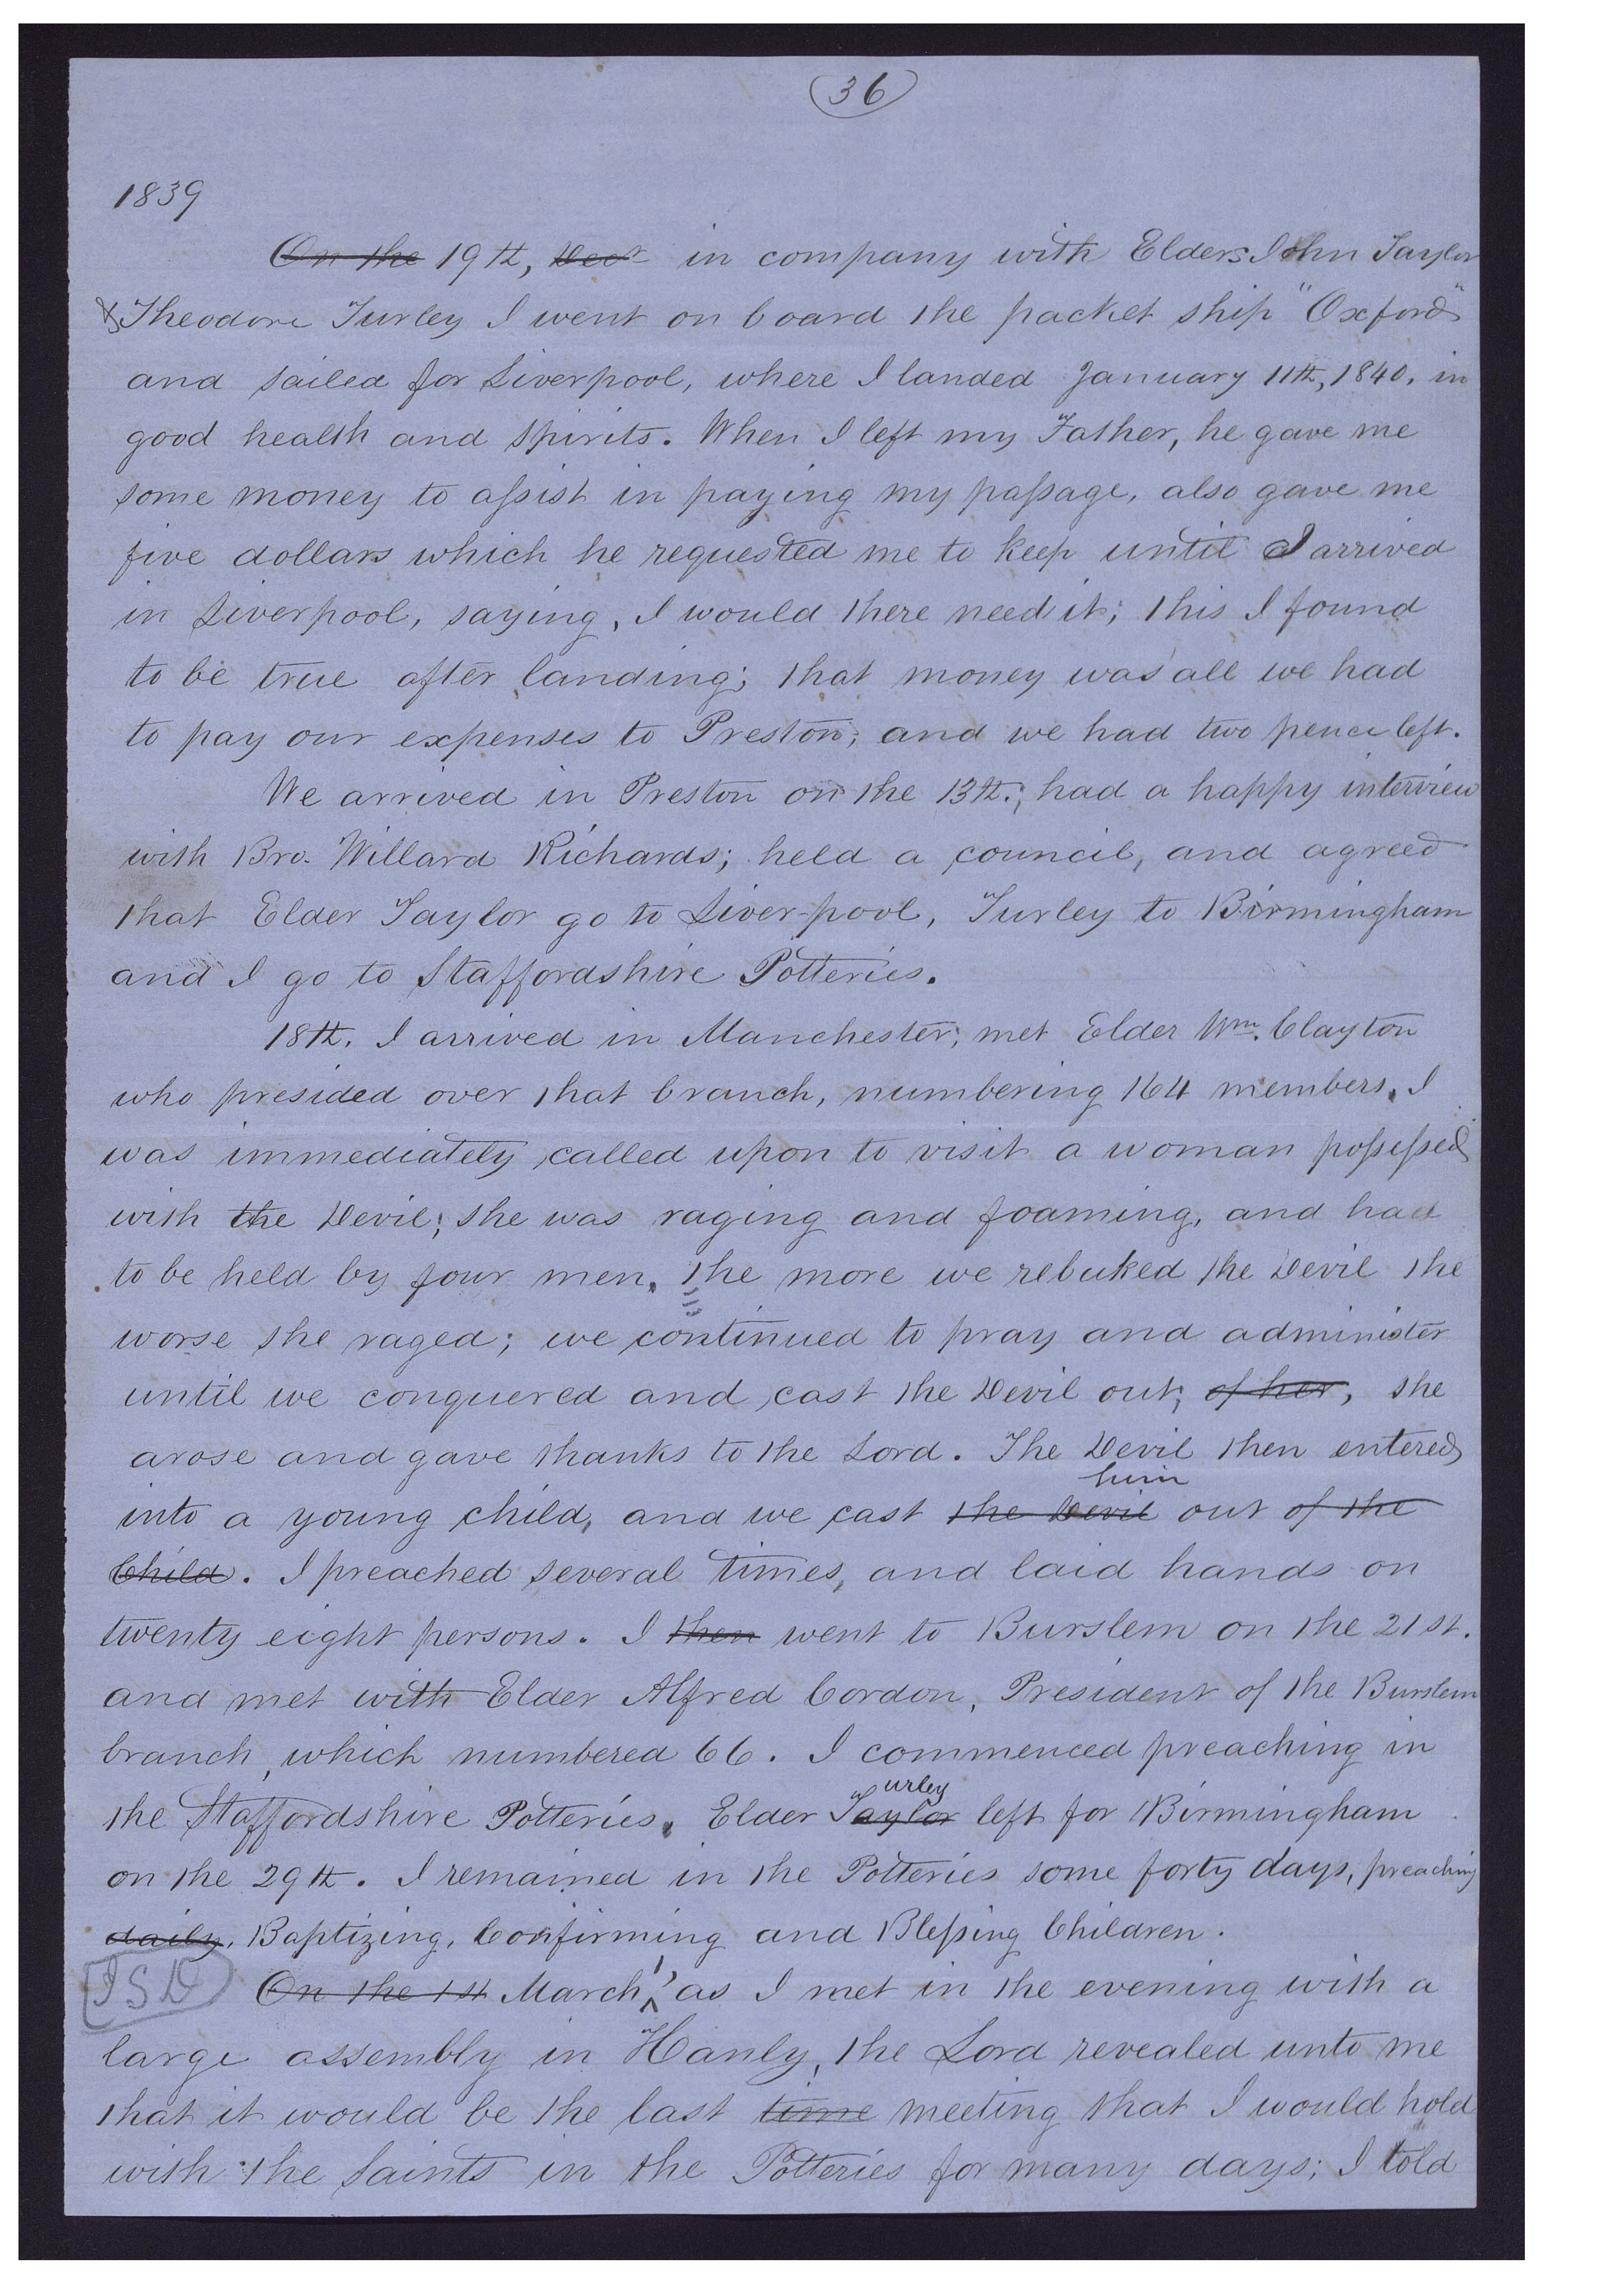 36
1839
On the 19th, Decr in company with Elders John Taylor
& Theodore Turley I went on board the packet ship "Oxford"
and sailed for Liverpool, where I landed January 11th, 1840. in
good health and spirits. When I left my Father, he gave me
some money to assist in paying my passage, also gave me
five dollars which he requested me to keep until I arrived
in Liverpool, saying, I would there need it; this I found
to be true after landing; that money was all we had
to pay our expenses to Preston; and we had two pence left.
We arrived in Preston on the 13th.; had a happy interview
with Bro. Willard Richards; held a council, and agreed
that Elder Taylor go to Liver-pool, Turley to Birmingham
and I go to Staffordshire Potteries.
18th. I arrived in Manchester; met Elder Wm. Clayton
who presided over that branch, numbering 164 members. I
was immediately called upon to visit a woman possessed
with the Devil; she was raging and foaming, and had
to be held by four men. the more we rebuked the Devil the
worse she raged; we continued to pray and administer
until we conquered and cast the Devil out; of her, she
arose and gave thanks to the Lord. The Devil then entered
him
into a young child, and we cast the Devil out of the
Child. I preached several times, and laid hands on
twenty eight persons. I then went to Burslem on the 21st.
and met with Elder Alfred Cordon, President of the Burslem
branch, which numbered 66. I commenced preaching in
urley
the Staffordshire Potteries. Elder Taylor left for Birmingham
on the 29th. I remained in the Potteries some forty days, preaching
daily, Baptizing, Confirming and Blessing Children.
JSD On the 1st March 1, as I met in the evening with a
large assembly in Hanly, the Lord revealed unto me
that it would be the last time meeting that I would hold
with the Saints in the Potteries for many days; I told